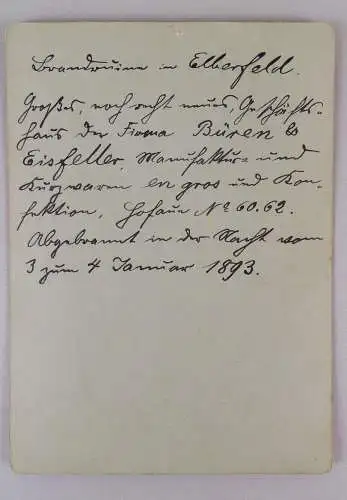 Brandruine in Elberfeld.
Großes, noch recht neues, Geschäfts-
haus der Firma Büren &
Eisfeller, Manufaktur= und
Kurzwaren en gros und Kon-
fektion, Hofaue Nº 60.62.
Abgebrannt in der Nacht vom
3 zum 4 Januar 1893.